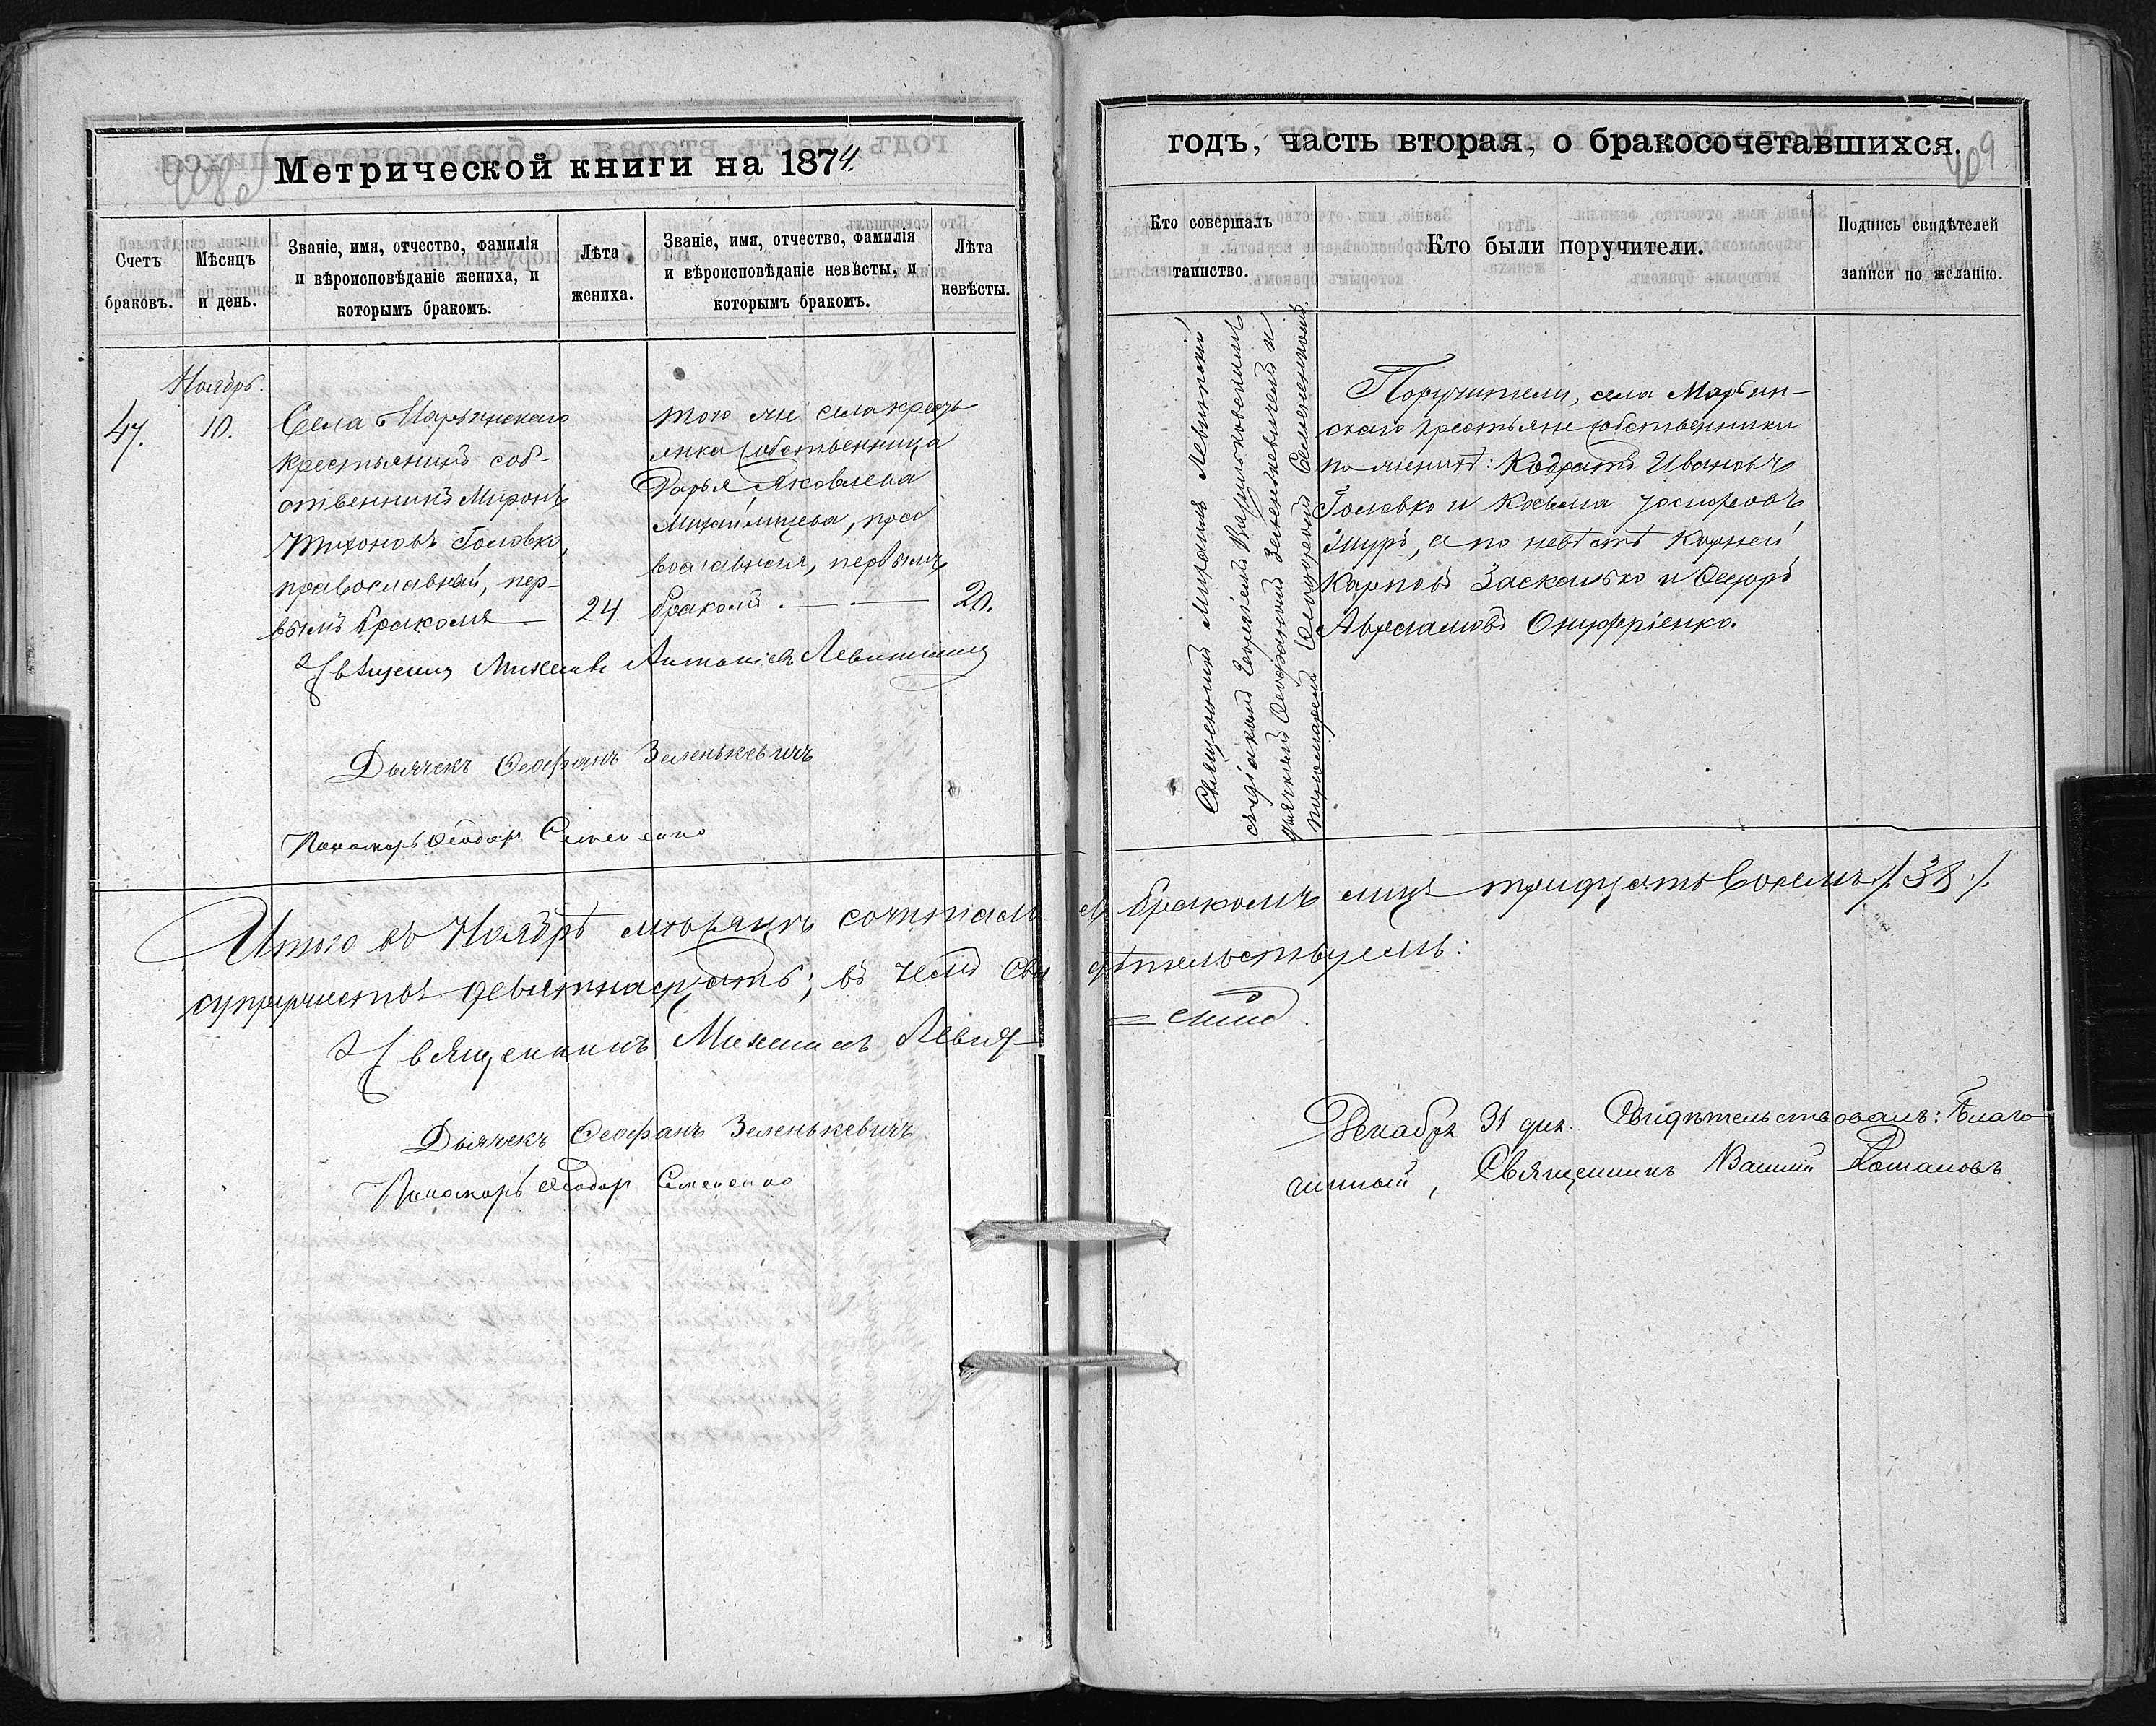 Метрической книги на 1874.
Счетъ браковъ.
Мѣсяцъ и день.
Званіе, имя, отчество, фамилія
и вѣроисповѣданіе жениха, и
которымъ бракомъ.
Лѣта
жениха.
Званіе, имя, отчество, фамилія
и вѣроисповѣданіе невѣсты, и
которымъ бракомъ.
Лѣта
невѣсты.
Ноябрь.
47.
10.
Села Марьинскаго
крестьянинъ соб-
ственникъ Миронъ
Тихоновъ Головко,
православный, пер-
вымъ бракомъ
24.
того же села кресть
янка собственница
Дарья Яковлева
Михайлицева, прав
вославная, первымъ
бракомъ.
20.
Священникъ Михаилъ Антоніевъ Левитскій
Дьячекъ Ѳеофанъ Зеленькевичъ
Пономарь Ѳеодор Семененко
Итого въ Ноябрѣ мѣсяцѣ сочитало
супружествъ девятнадцать; въ чемъ сви
Священникъ Михаилъ Левит-
Дьячекъ Ѳеофанъ Зеленькевичъ
Пономарь Ѳеодор Семененко
годъ, часть вторая, о бракосочетавшихся.
409
Кто совершалъ
таинство.
Кто были поручители.
Подпись свидѣтелей
записи по желанію.
Священникъ Михаилъ Левитскій
съ діакономъ Георгіемъ
дьячкомъ Ѳеофаномъ Зеленькевичемъ и
пономаремъ Ѳеодоромъ Семененкомъ.
Поручители, села Марьин-
скаго крестьяне собственники
по женихѣ: Кодратъ Ивановъ
Головко и Косьма Іосифовъ
а по невѣстѣ Корней
Карповъ Заскалько и Ѳедоръ
Авраамовъ Онуфріенко.
ся бракомъ лицъ тридцать восемь /. 38 ./.
дѣтельствуемъ:
= скій.
Декабря 31 дня. Свидѣтельствовалъ: Благо
чинный, Священникъ Романовъ.